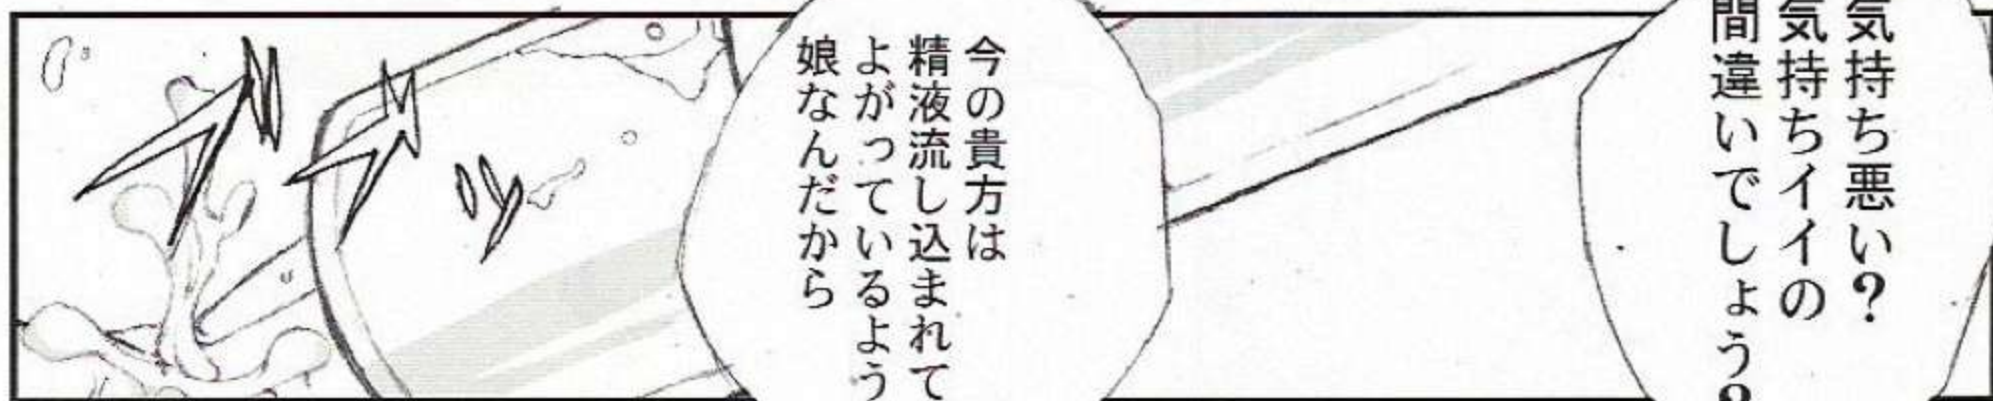 気持ち悪い?
気持ちイイの
間違いでしょう?
今の貴方は
精液流し込まれて
よがっているよう
娘なんだから
ブブッ